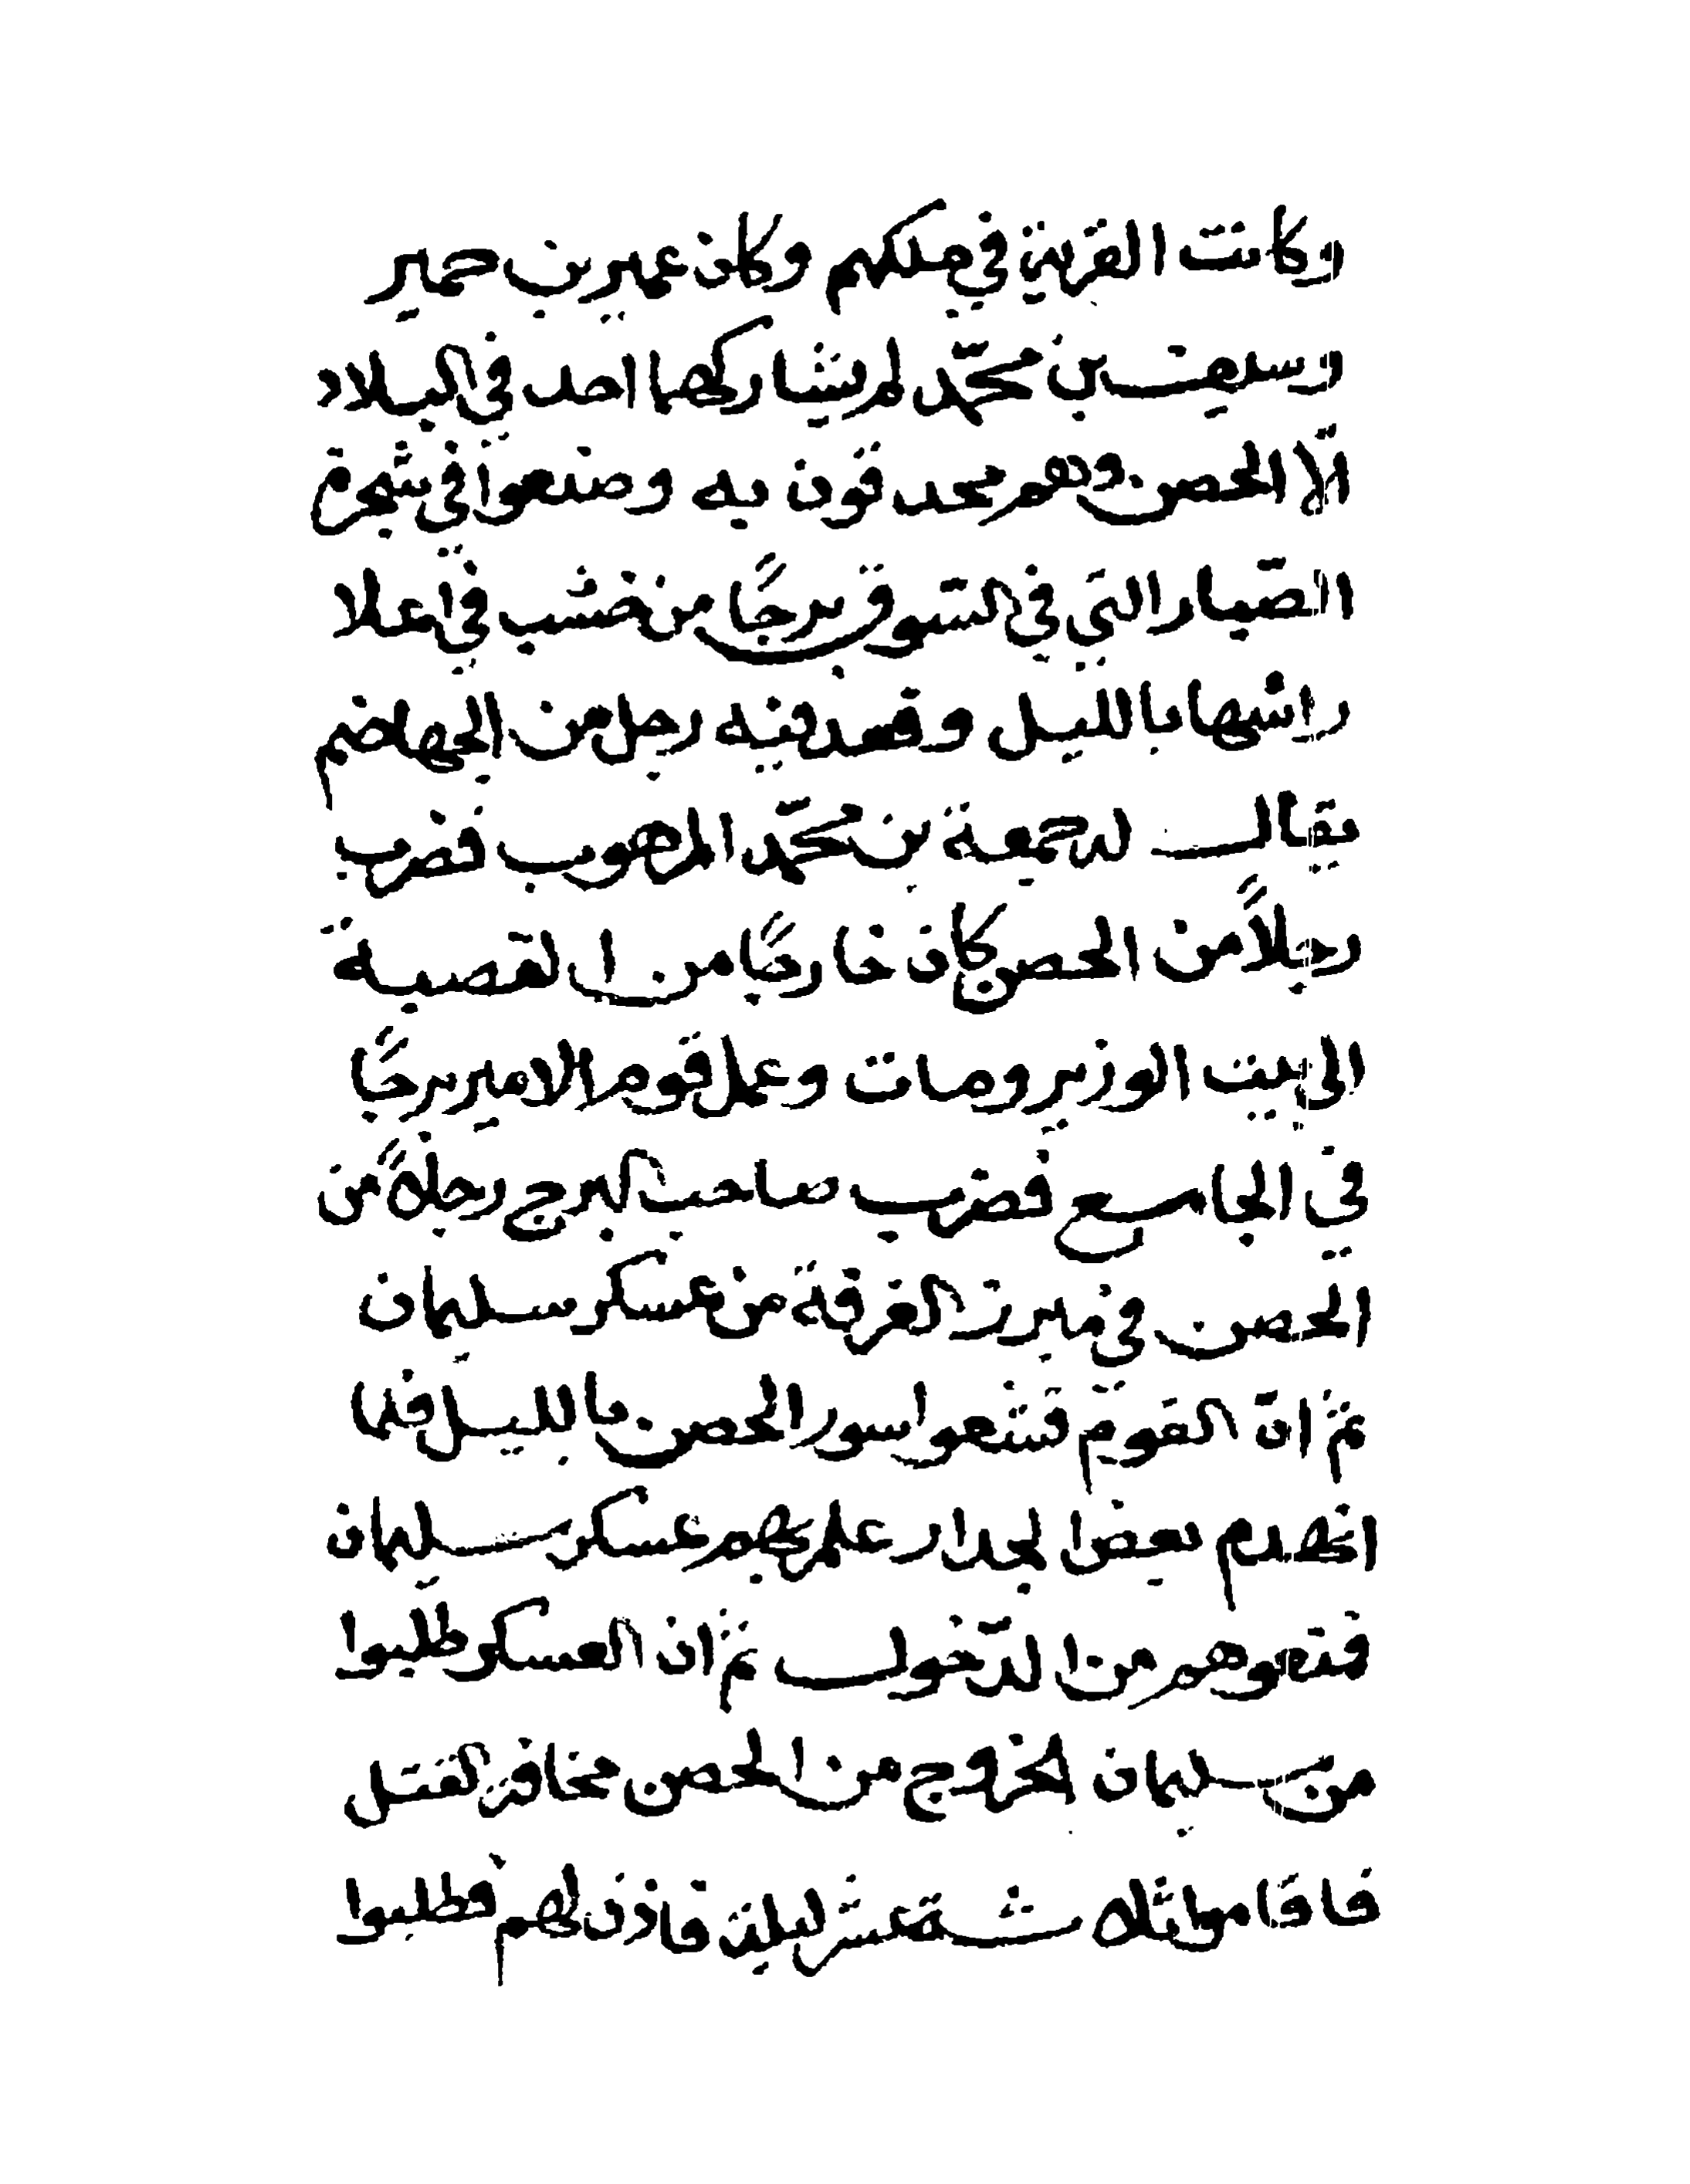 وكانت القرية في ملكهم وكان عمير بن حمير
وسيف بن محمّد لم يشاركهما احد في البلاد
الّا الحصن وهم محدقون به وصنعوا في شجرة
الصّبار التي في السّوق برجًا من خشب في اعلا
راسها بالليل وقعد فيه رجل من الجهاضم
يقال له جمعة بن محمّد المرهوب فضرب
رجلًا من الحصن كان خارجًا من القصبة
الى بيت الوزير ومات وعمل قوم الامير برجًا
في الجامع فضرب صاحب البرج رجلًا من
الحصن في مبرز الغرفة من عسكر سليمان
ثمّ انّ القوم قشعوا سور الحصن بالليل فلما
انهدم بعض الجدار علم بهم عسكر سليمان
فمنعوهم من الدّخول ثمّ ان العسكر طلبوا
من سليمان الخروج من الحصن مخافة القتل
فاقاموا ثلاثة عشر ليلة فاذن لهم فطلبوا